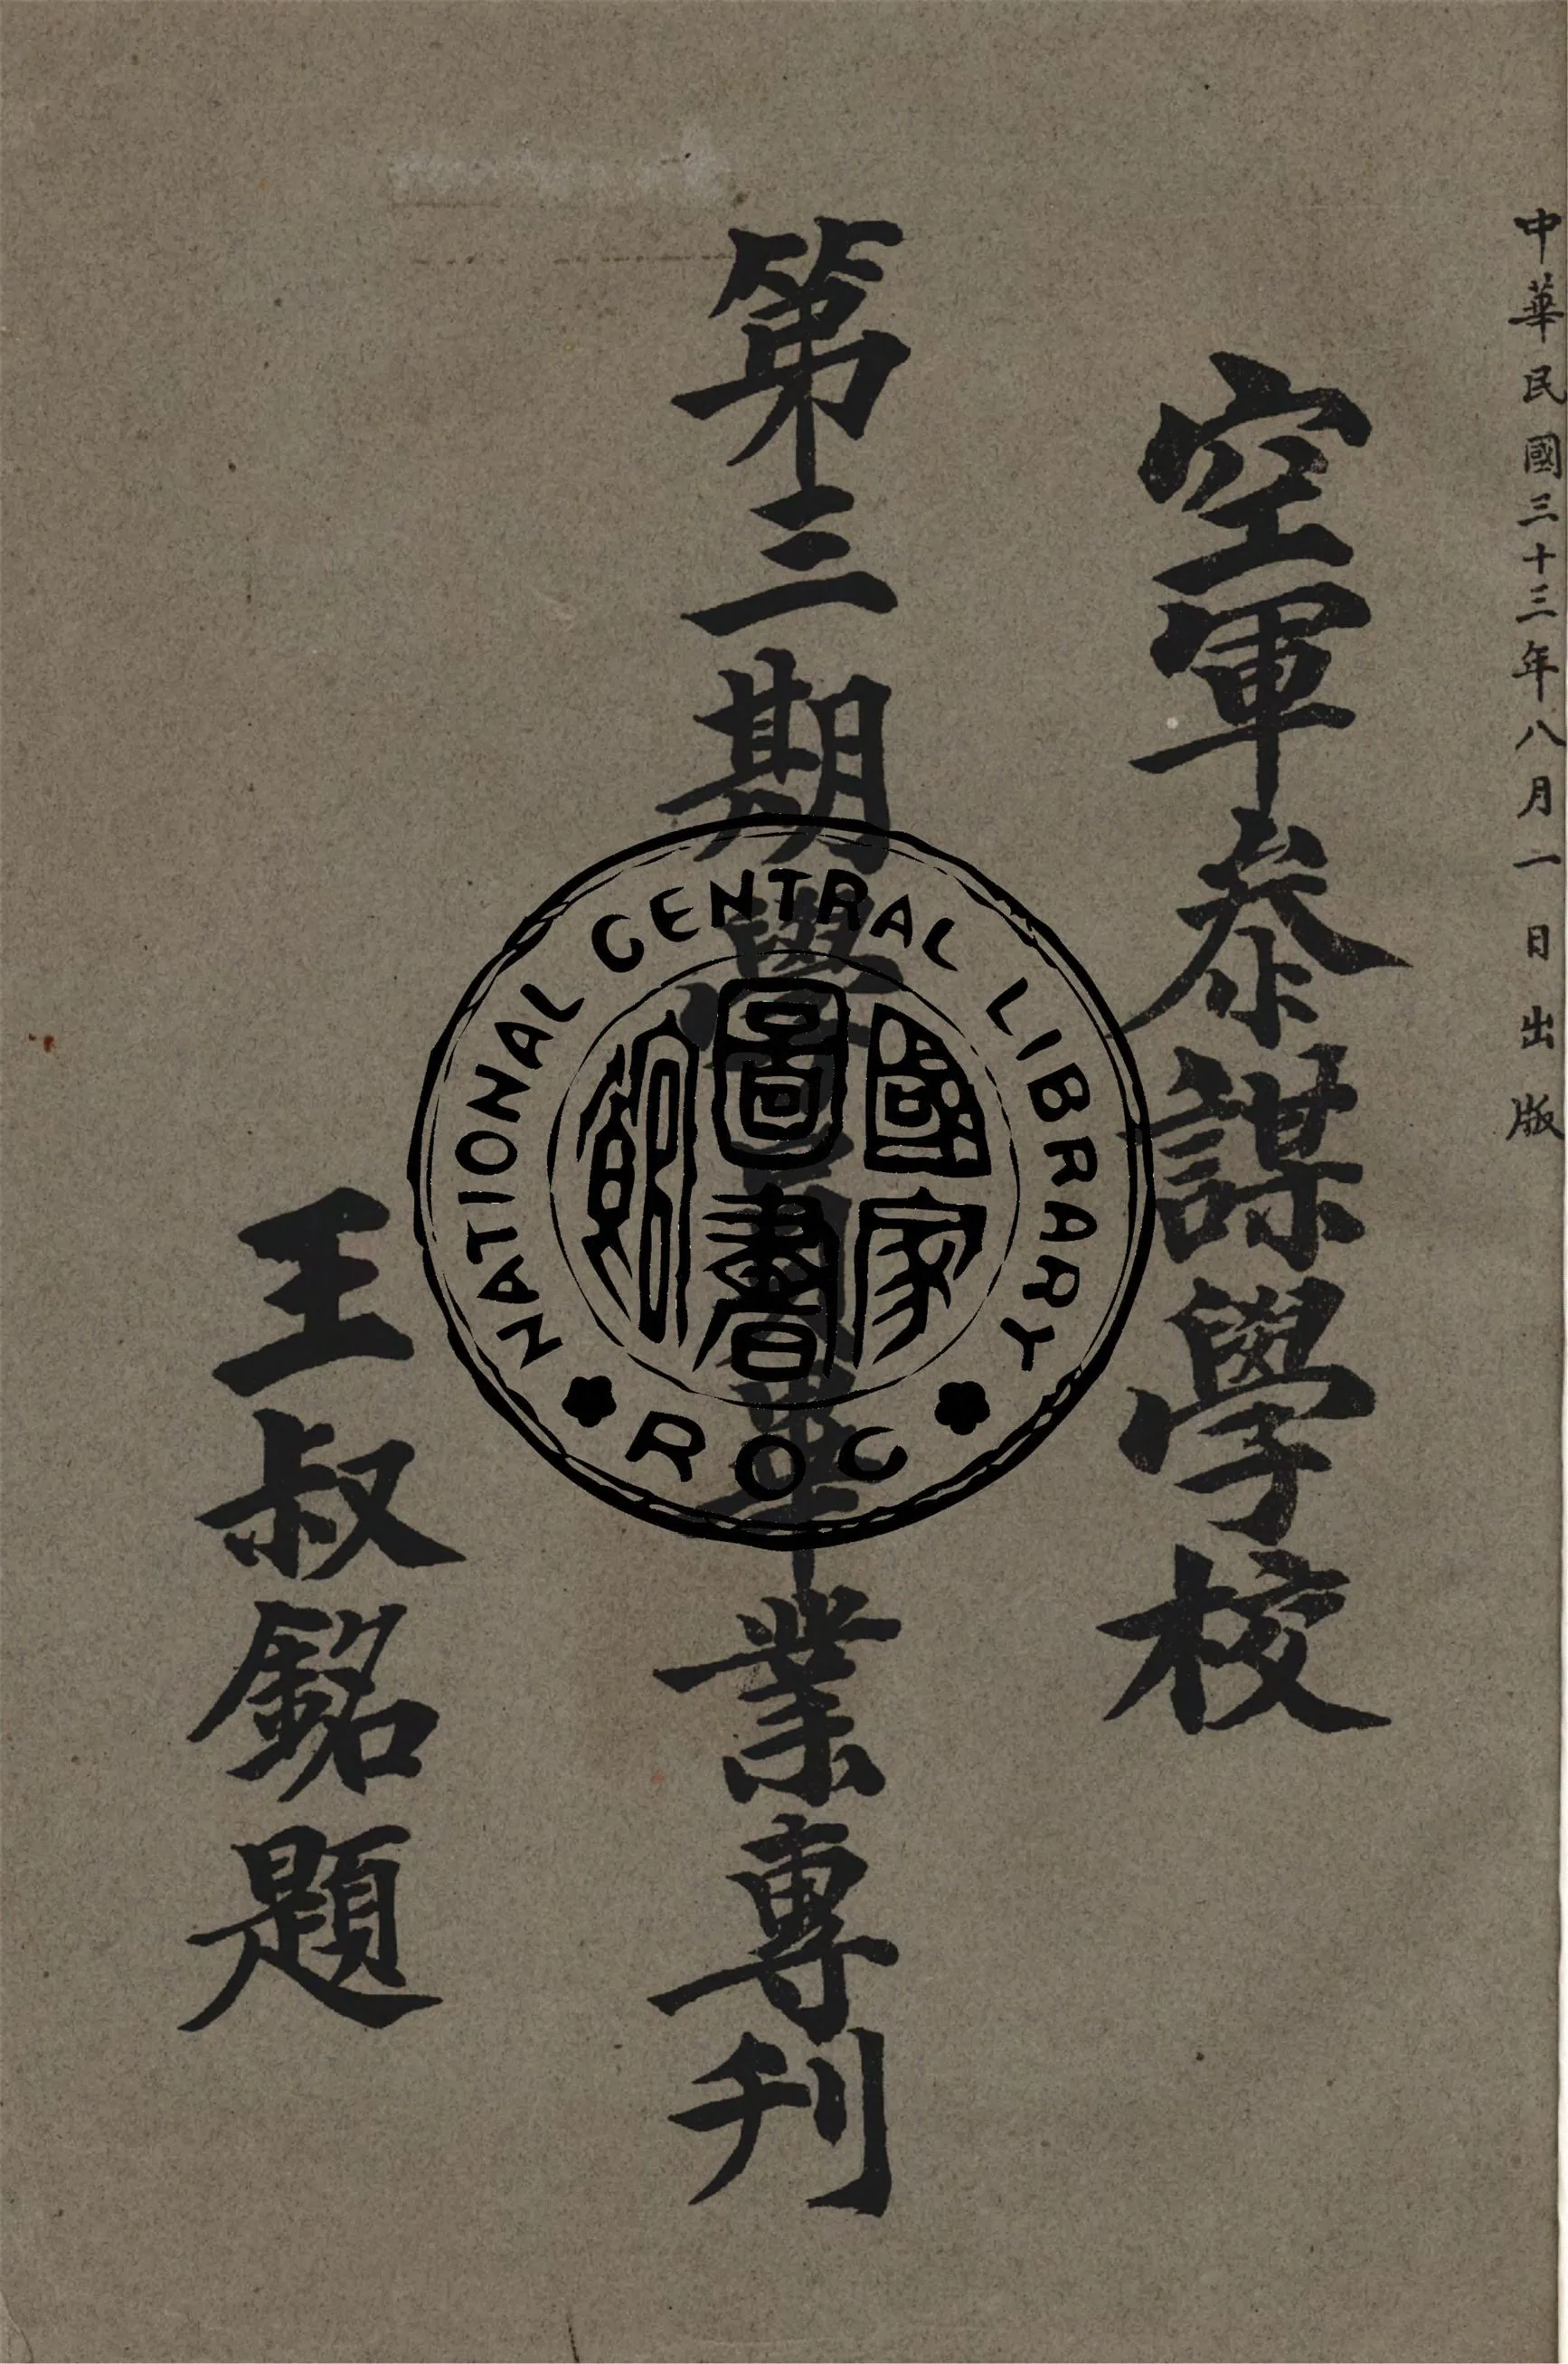 中華民國三十三年八月一日出版
空軍叅謀學校
第三期學員畢業專刊
王叔銘題
NATIONAL CENTRAL LIBRARY
國家圖書館
ROC